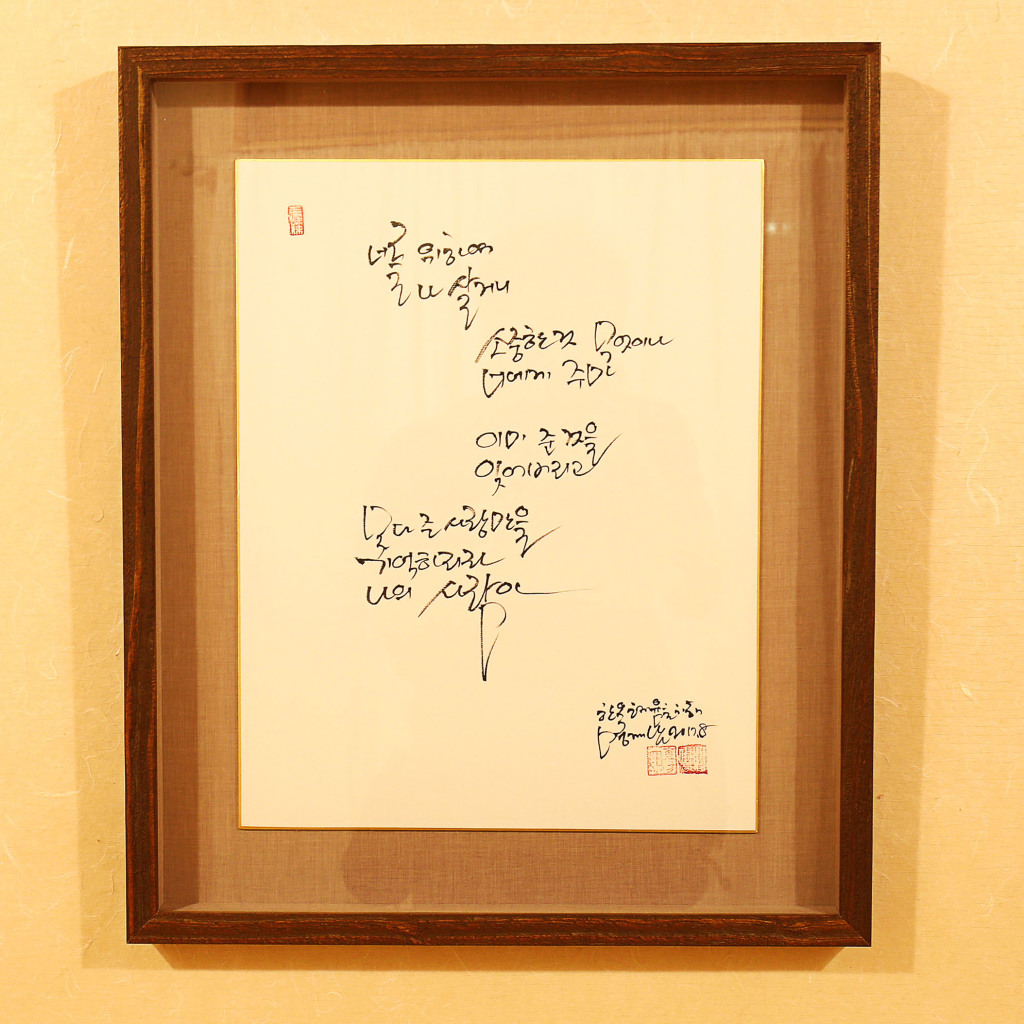 너를 위하여
나 살거니
소중한 것 무엇이나
너에게 주마
이미 준 것을
잊어버리고
못다 준 사랑만을
기억하리라
나의 사랑아
2017.8